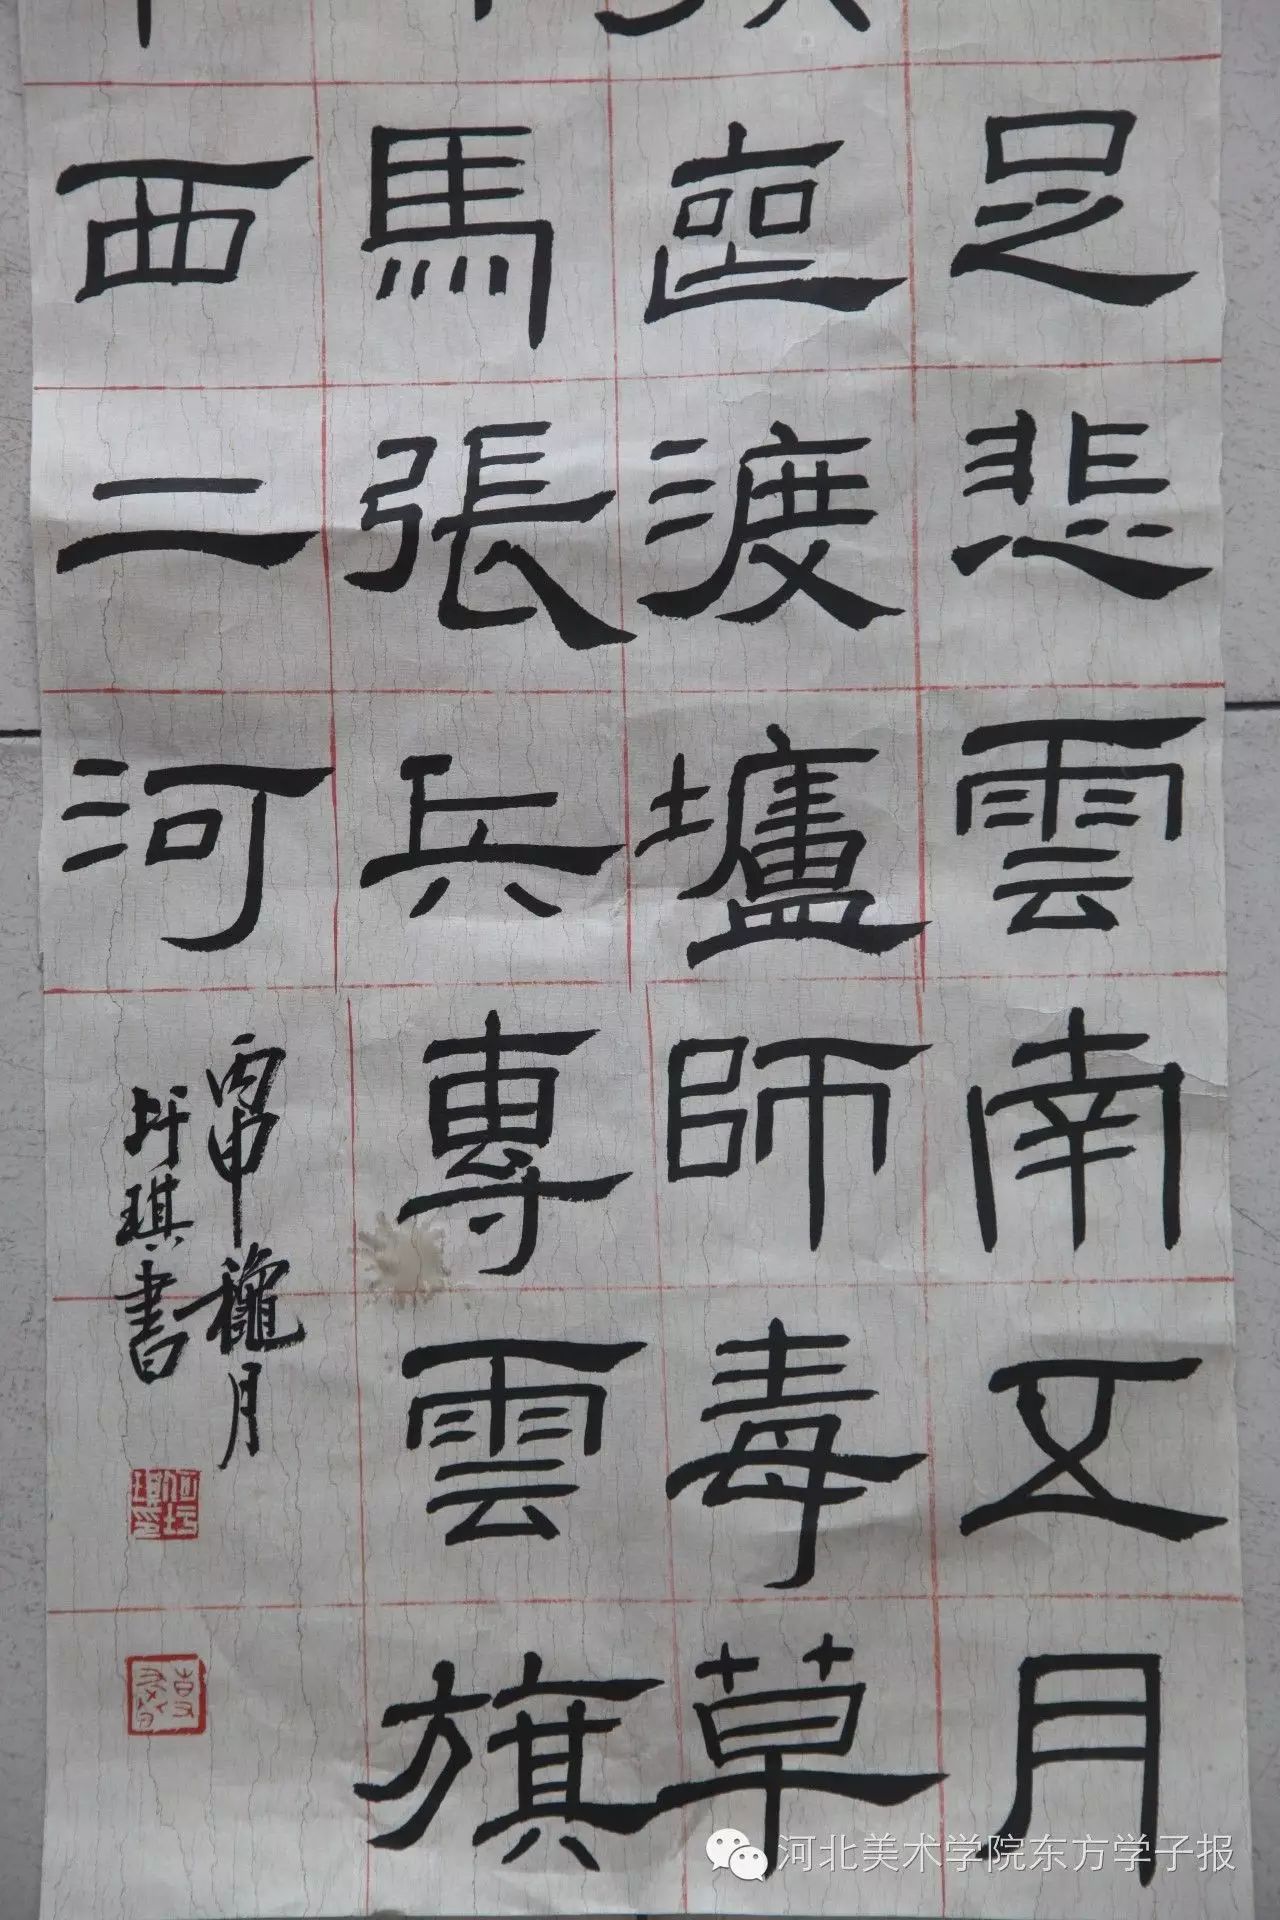 足悲雲南五月
喪渡壚師毒草
馬張兵專雲旗
西二河
丙申穐月
圩琪書
河北美术学院东方学子报